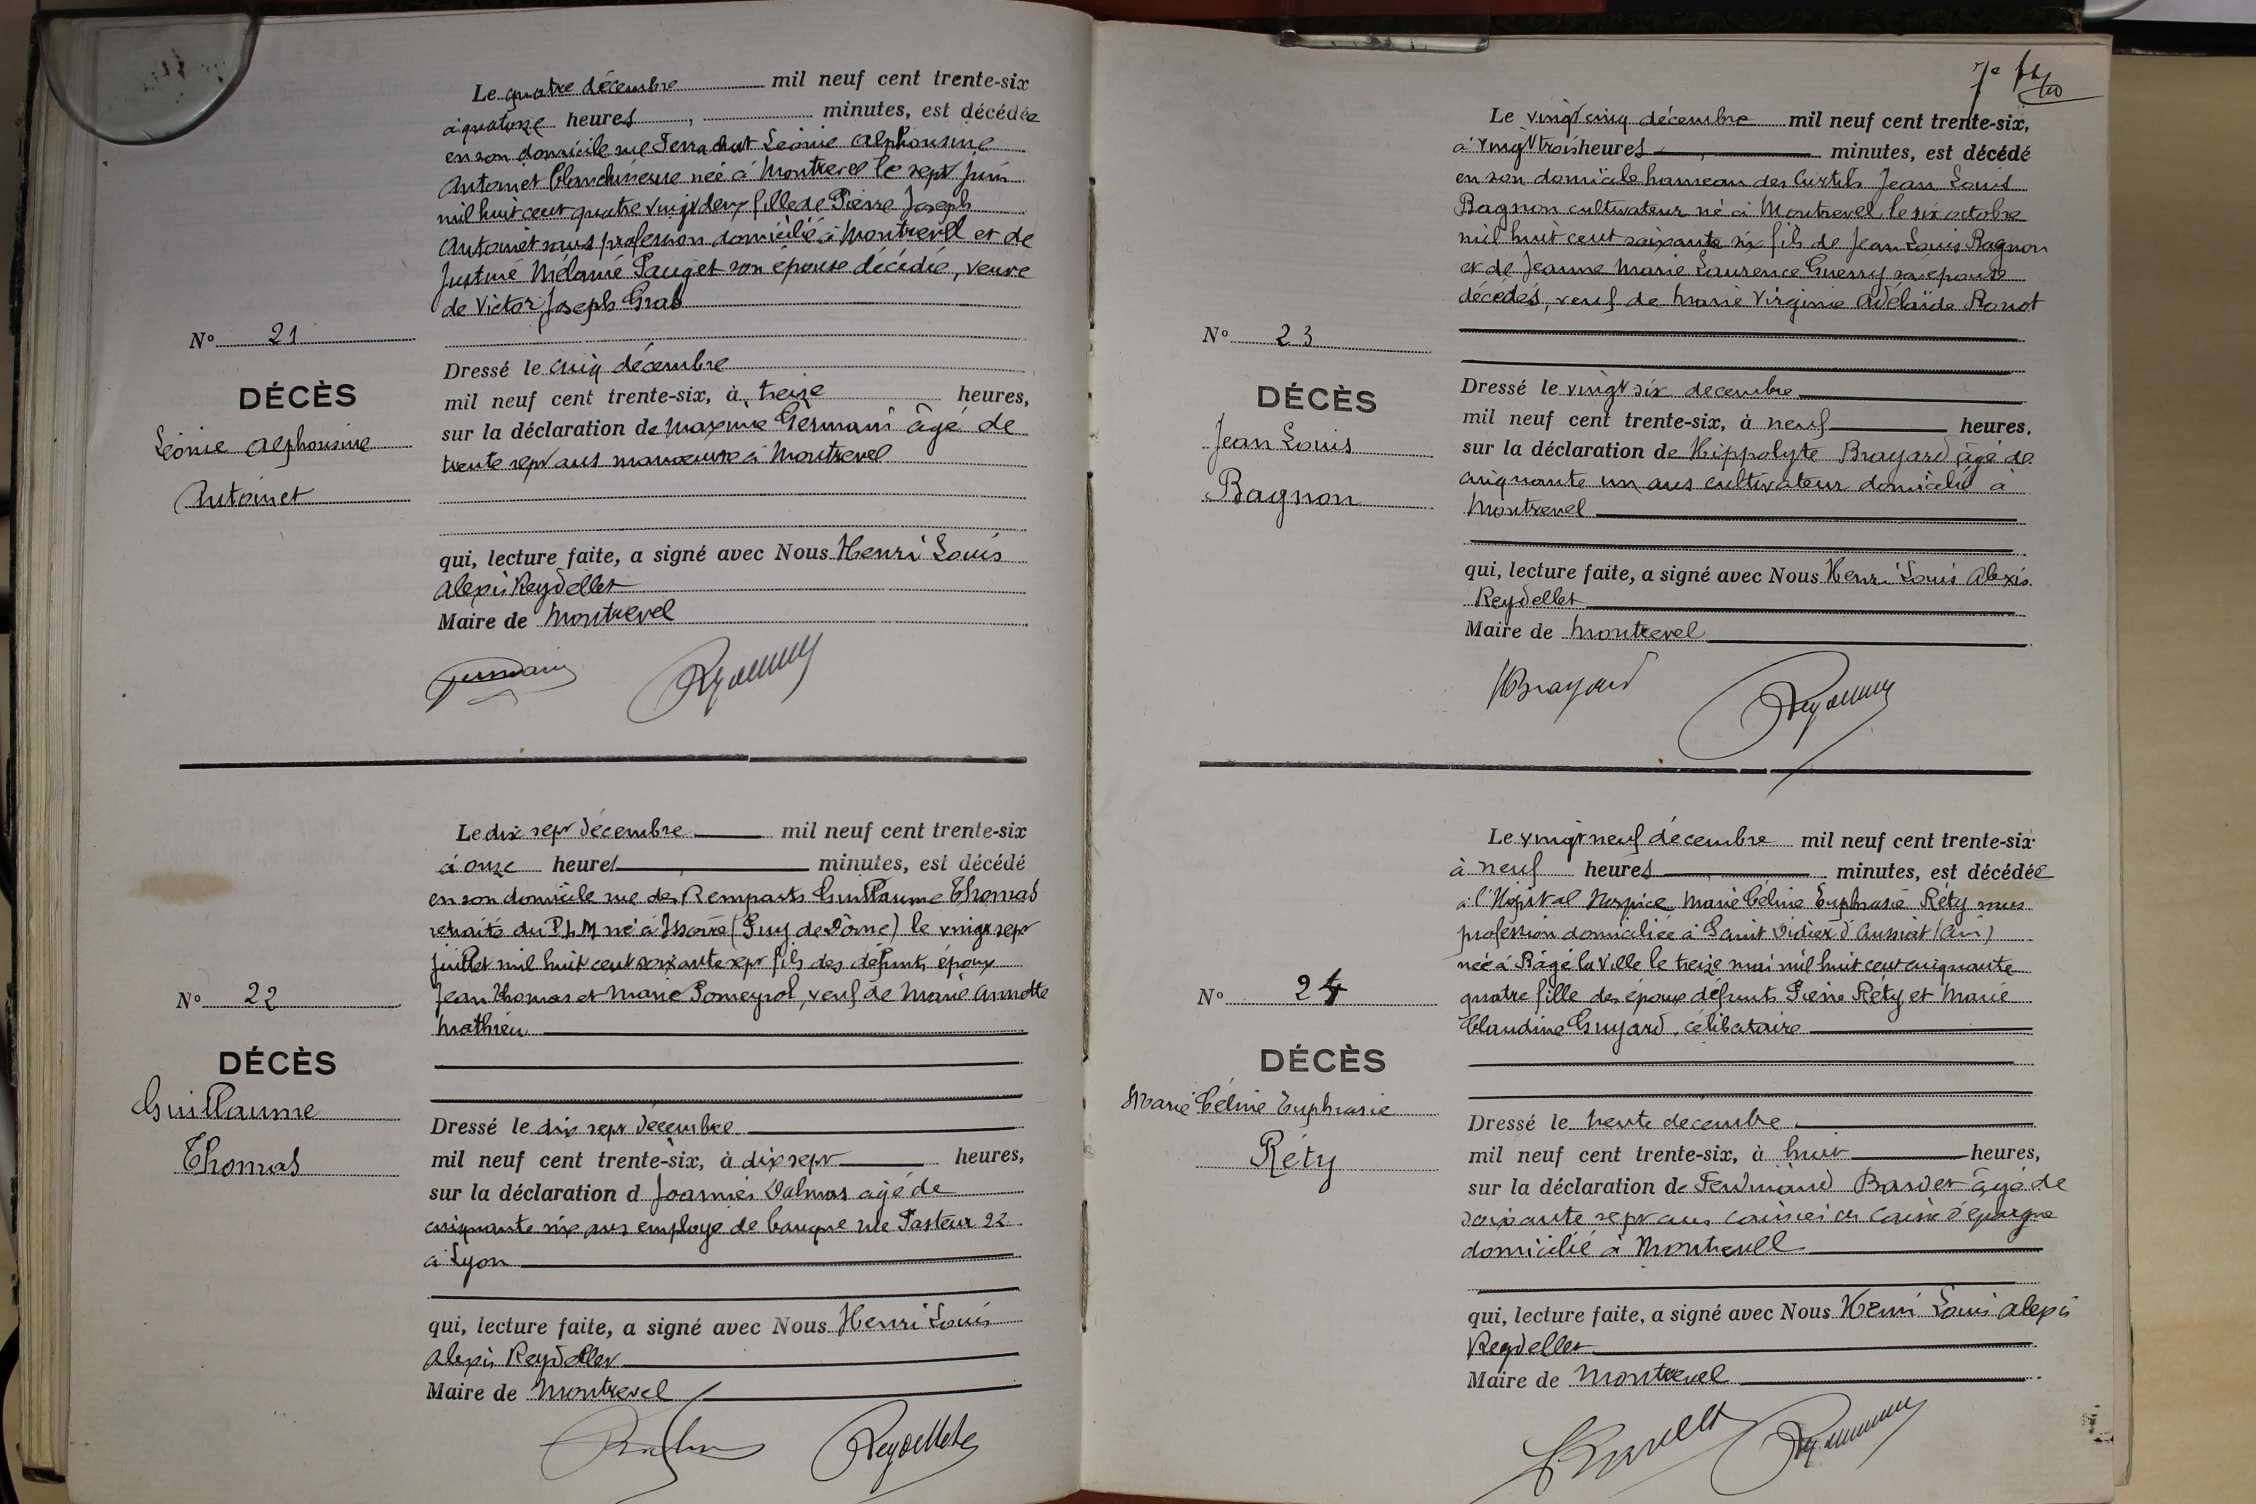 Le quatre décembre mil neuf cent trente-six
à quatorze heures, minutes, est décédée
en son domicile rue Ferrachat Léonie Alphonsine
Antoinet blanchisseuse née à Montrevel le sept juin
mil huit cent quatre vingt deux fille de Pierre Joseph
Antoinet sans profession domicilié à Montrevel et de
Justine Mélanie Pauget son épouse décédée, veuve
de Victor Joseph Gras
N° 21
DÉCÈS
Léonie Alphonsine
Antoinet
Dressé le cinq décembre
mil neuf cent trente-six, à treize heures,
sur la déclaration de Maxime Germain âgé de
trente sept ans manoeuvre à Montrevel
qui, lecture faite, a signé avec Nous Henri Louis
Alexis Reydellet
Maire de Montrevel
Germain
Le dix sept décembre mil neuf cent trente-six
à onze heures, minutes, est décédé
en son domicile rue des Remparts Guillaume Thomas
retraité du PLM né à Issoire (Puy de Dôme) le vingt sept
juillet mil huit cent soixante sept fils des défunts époux
Jean Thomas et Marie Pomeyrol, veuf de Marie Annette
Mathieu
N° 22
DÉCÈS
Guillaume
Thomas
Dressé le dix sept décembre
mil neuf cent trente-six, à dix sept heures,
sur la déclaration d Joannès Dalmas âgé de
cinquante six ans employé de banque rue Pasteur 22
à Lyon
qui, lecture faite, a signé avec Nous Henri Louis
Alexis Reydellet
Maire de Montrevel
Reydellet
Le vingt cinq décembre mil neuf cent trente-six,
à vingt trois heures, minutes, est décédé
en son domicile hameau des Curtils Jean Louis
Bagnon cultivateur né à Montrevel le six octobre
mil huit cent soixante six fils de Jean Louis Bagnon
et de Jeanne Marie Laurence Guerry sa épouse
décédés, veuf de Marie Virginie Adélaïde Ronot
N° 23
DÉCÈS
Jean Louis
Bagnon
Dressé le vingt six decembre
mil neuf cent trente-six, à neuf heures,
sur la déclaration de Hippolyte Brayard âgé de
cinquante un ans cultivateur domicilié à
Montrevel
qui, lecture faite, a signé avec Nous Henri Louis Alexis
Reydellet
Maire de Montrevel
HBrayard
Le vingt neuf décembre mil neuf cent trente-six
à neuf heures minutes, est décédée
à l'Hôpital Hospice Marie Céline Euphrasie Réty sans
profession domiciliée à Saint Didier d'Aussiat (Ain)
née à Bâgé la Ville le treize mai mil huit cent cinquante
quatre fille des époux défunts Pierre Réty et Marie
Claudine Guyard, célibataire
N° 24
DÉCÈS
Marie Céline Euphrasie
Réty
Dressé le trente decembre
mil neuf cent trente-six, à huit heures,
sur la déclaration de Ferdinand Bardet âgé de
soixante sept ans caissier caisse d'épargne
domicilié à Montrevel
qui, lecture faite, a signé avec Nous Henri Louis Alexis
Reydellet
Maire de Montrevel